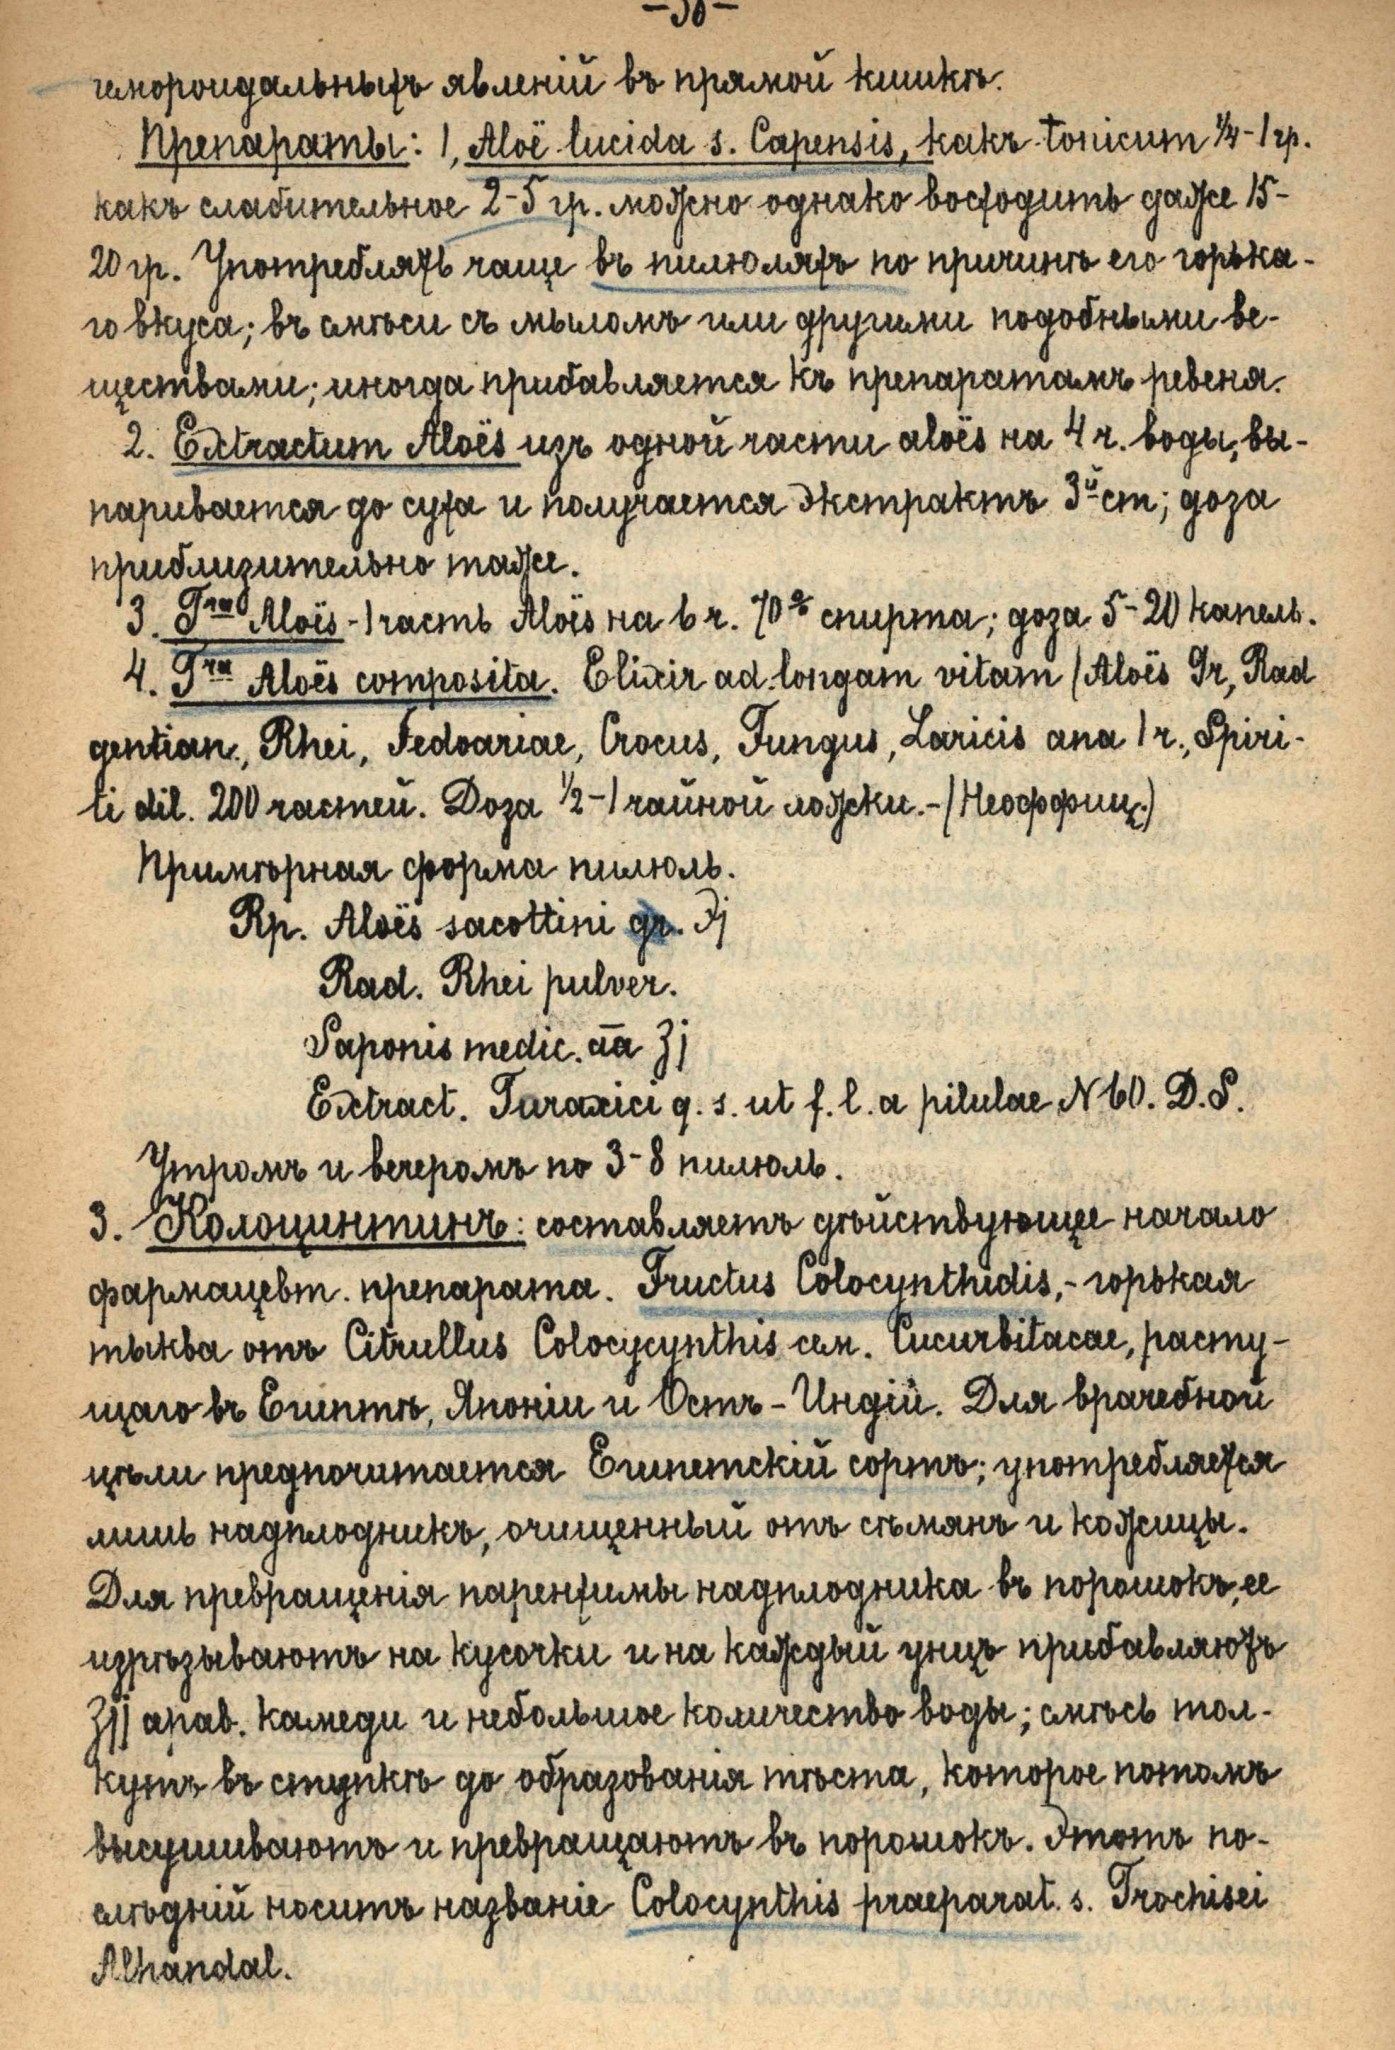 гемороидальныхъ явленій въ прямой кишкѣ.
Препараты: 1, Aloë lucida s. Capensis, какъ tonicum ¼-1 гр.
какъ слабительное 2-5 гр. можно однако восходить даже 15-
20 гр. Употребляютъ чаще въ пилюляхъ по причинѣ его горька-
го вкуса; въ смѣси съ мыломъ или другими подобными ве-
ществами; иногда прибавляется къ препаратамъ ревеня.
2. Extractum Aloës изъ одной части aloës на 4 ч. воды, вы-
паривается до суха и получается экстрактъ 3й ст; доза
приблизительно таже.
3. Tra Aloës - 1 часть Aloës на 6 ч. 70% спирта; доза 5-20 капель.
4. Tra Aloës composita. Elixir ad longam vitam (Aloës Gr, Rad
gentian., Rhei, Zedoariae, Crocus, Fungus, Laricis ana 1 ч., Spiri-
ti dil. 200 частей. Доза ½-1 чайной ложки.-(Неоффиц.)
Примѣрная форма пилюль.
Rp. Aloës sacottini gr. ℈j
Rad. Rhei pulver.
Saponis medic. āā ʒj
Extract. Taraxici q. s. ut f. l. a pilulae N 60. D.S.
Утромъ и вечеромъ по 3-8 пилюль.
3. Колоцинтинъ: составляетъ дѣйствующее начало
фармацевт. препарата. Fructus Colocynthidis,- горькая
тыква отъ Citrullus Colocycynthis сем. Cucurbitacae, расту-
щаго въ Египтѣ, Японіи и Остъ-Индій. Для врачебной
цѣли предпочитается Египетскій сортъ; употребляется
лишь надплодникъ, очищенный отъ сѣмянъ и кожицы.
Для превращенія паренхимы надплодника въ порошокъ, ее
изрѣзываютъ на кусочки и на каждый унцъ прибавляютъ
ʒjj арав. камеди и небольшое количество воды; смѣсь тол-
кутъ въ ступкѣ до образованія тѣста, которое потомъ
высушиваютъ и превращаютъ въ порошокъ. Этотъ по-
слѣдній носитъ названіе Colocynthis praeparat. s. Trochisei
Alhandal.